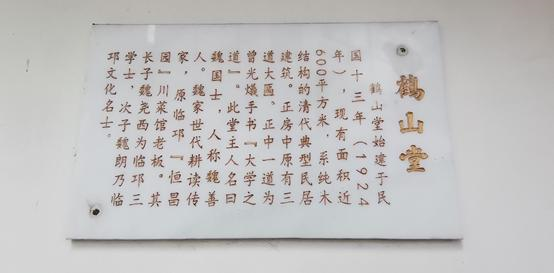 鹤山堂
鹤山堂始建于民
国十三年（1924
年），现有面积近
600平方米，系纯木
结构的清代典型民居
建筑。正房中原有三
道大匾。正中一道为
曾光爔手书『大学之
道』。此堂主人名曰
魏国士，人称魏善
人。魏家世代耕读传
家，原临邛『恒昌
园』川菜馆老板。其
长子魏尧西为临邛三
学士，次子魏朗乃临
邛文化名士。